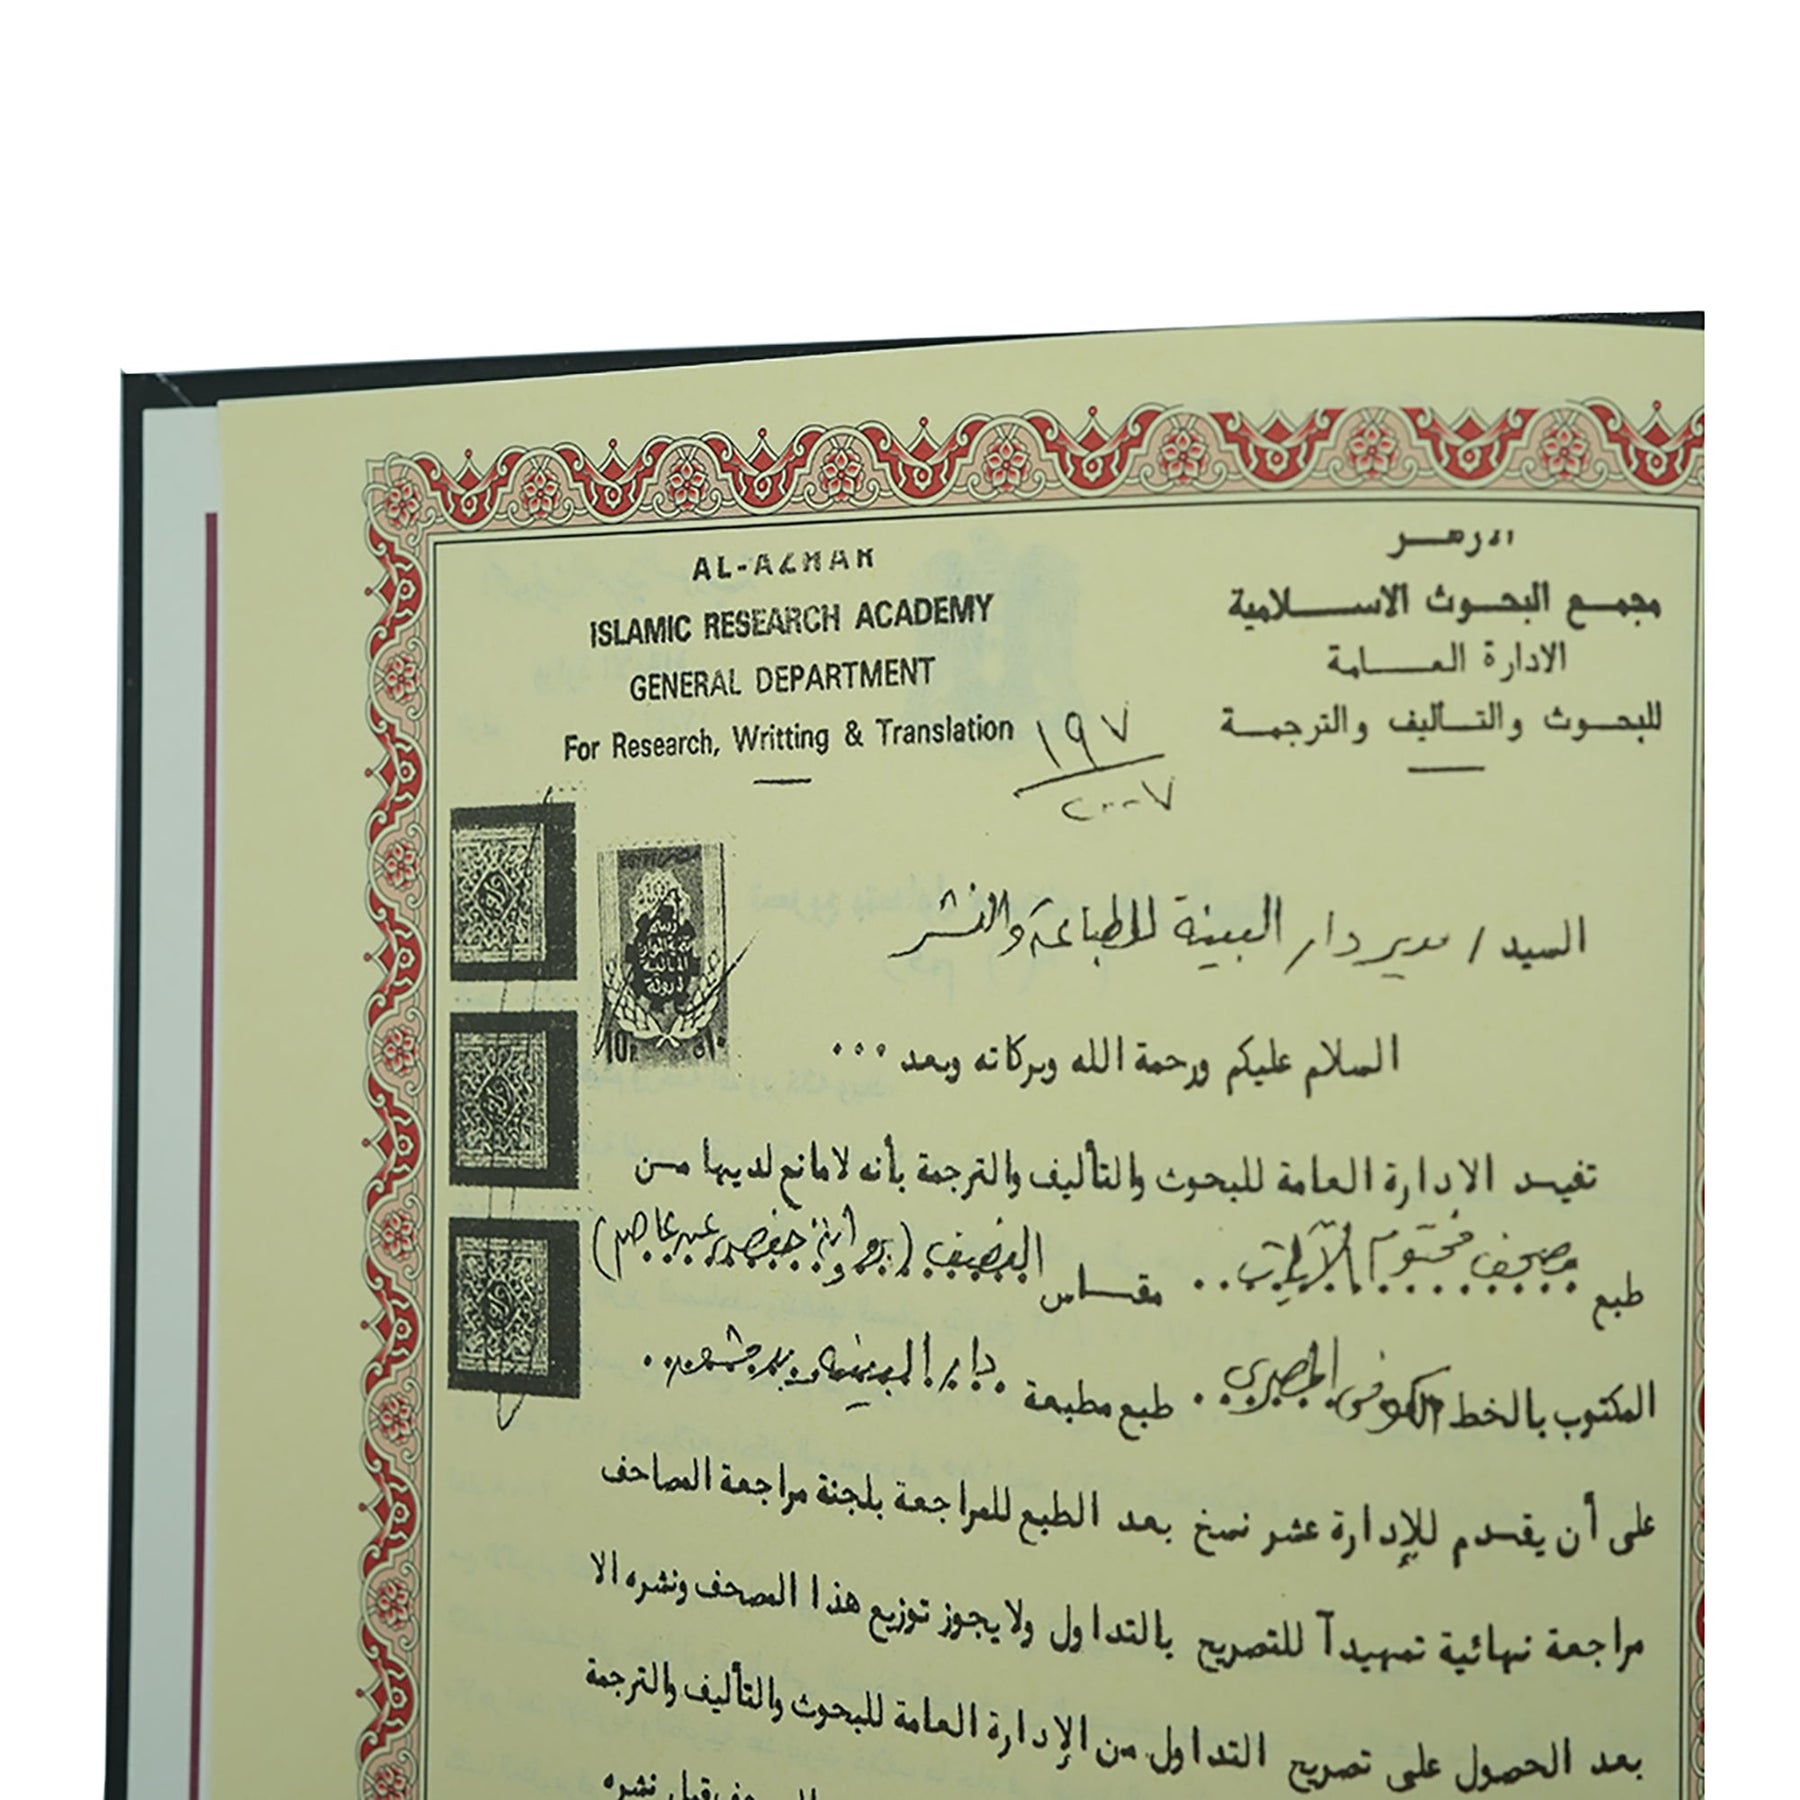 AL-AZHAR
ISLAMIC RESEARCH ACADEMY
GENERAL DEPARTMENT
For Research, Writting & Translation
الأزهر
مجمع البحوث الاسلامية
الادارة العامة
للبحوث والتأليف والترجمة
١٩٧
٢٠٠٧
السيد / مدير دار البينة للطباعة والنشر
السلام عليكم ورحمة الله وبركاته وبعد ...
تفيد الادارة العامة للبحوث والتأليف والترجمة بأنه لامانع لديها من
طبع مصحف مختوم الآيات .. مقاس (برواية حفص عن عاصم)
المكتوب بالخط الكوفى المصري .. طبع مطبعة دار البينة بدمشق ..
على أن يقدم للإدارة عشر نسخ بعد الطبع للمراجعة بلجنة مراجعة المصاحف
مراجعة نهائية تمهيدآ للتصريح بالتداول ولايجوز توزيع هذا المصحف ونشره الا
بعد الحصول على تصريح التداول من الإدارة العامة للبحوث والتأليف والترجمة
قبل نشره